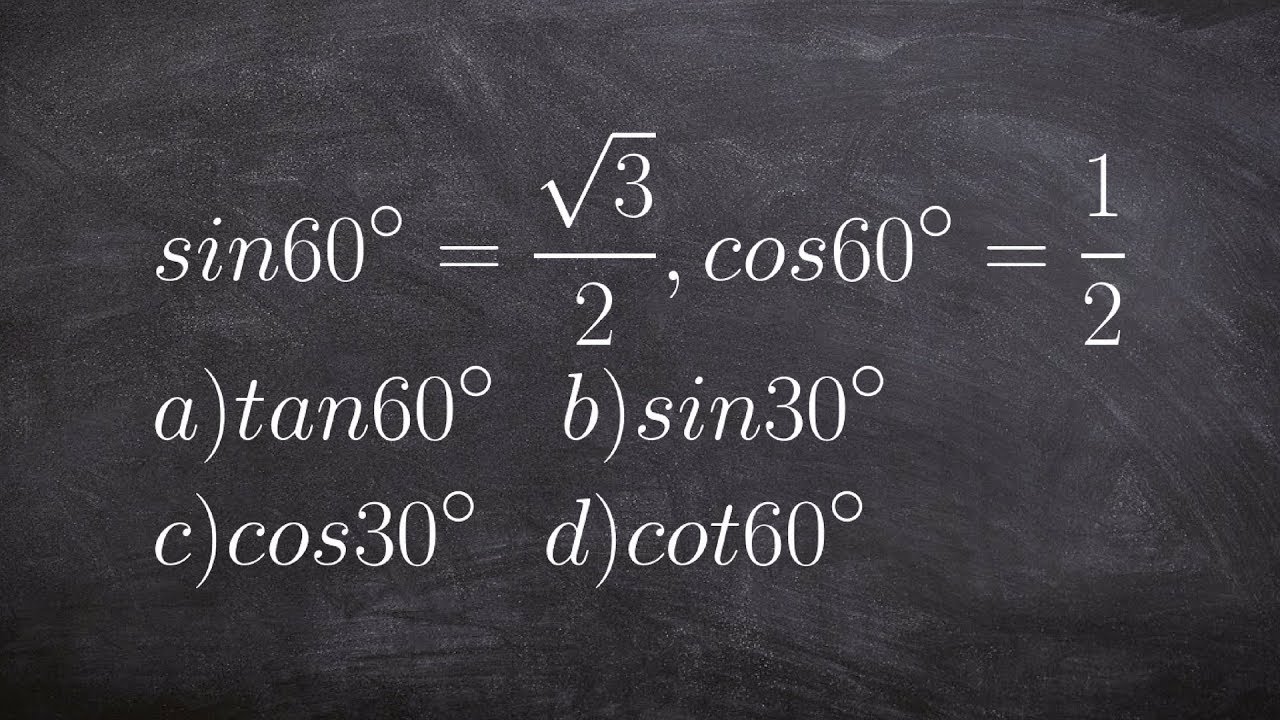 sin60° = √3/2, cos60° = 1/2
a)tan60° b)sin30°
c)cos30° d)cot60°